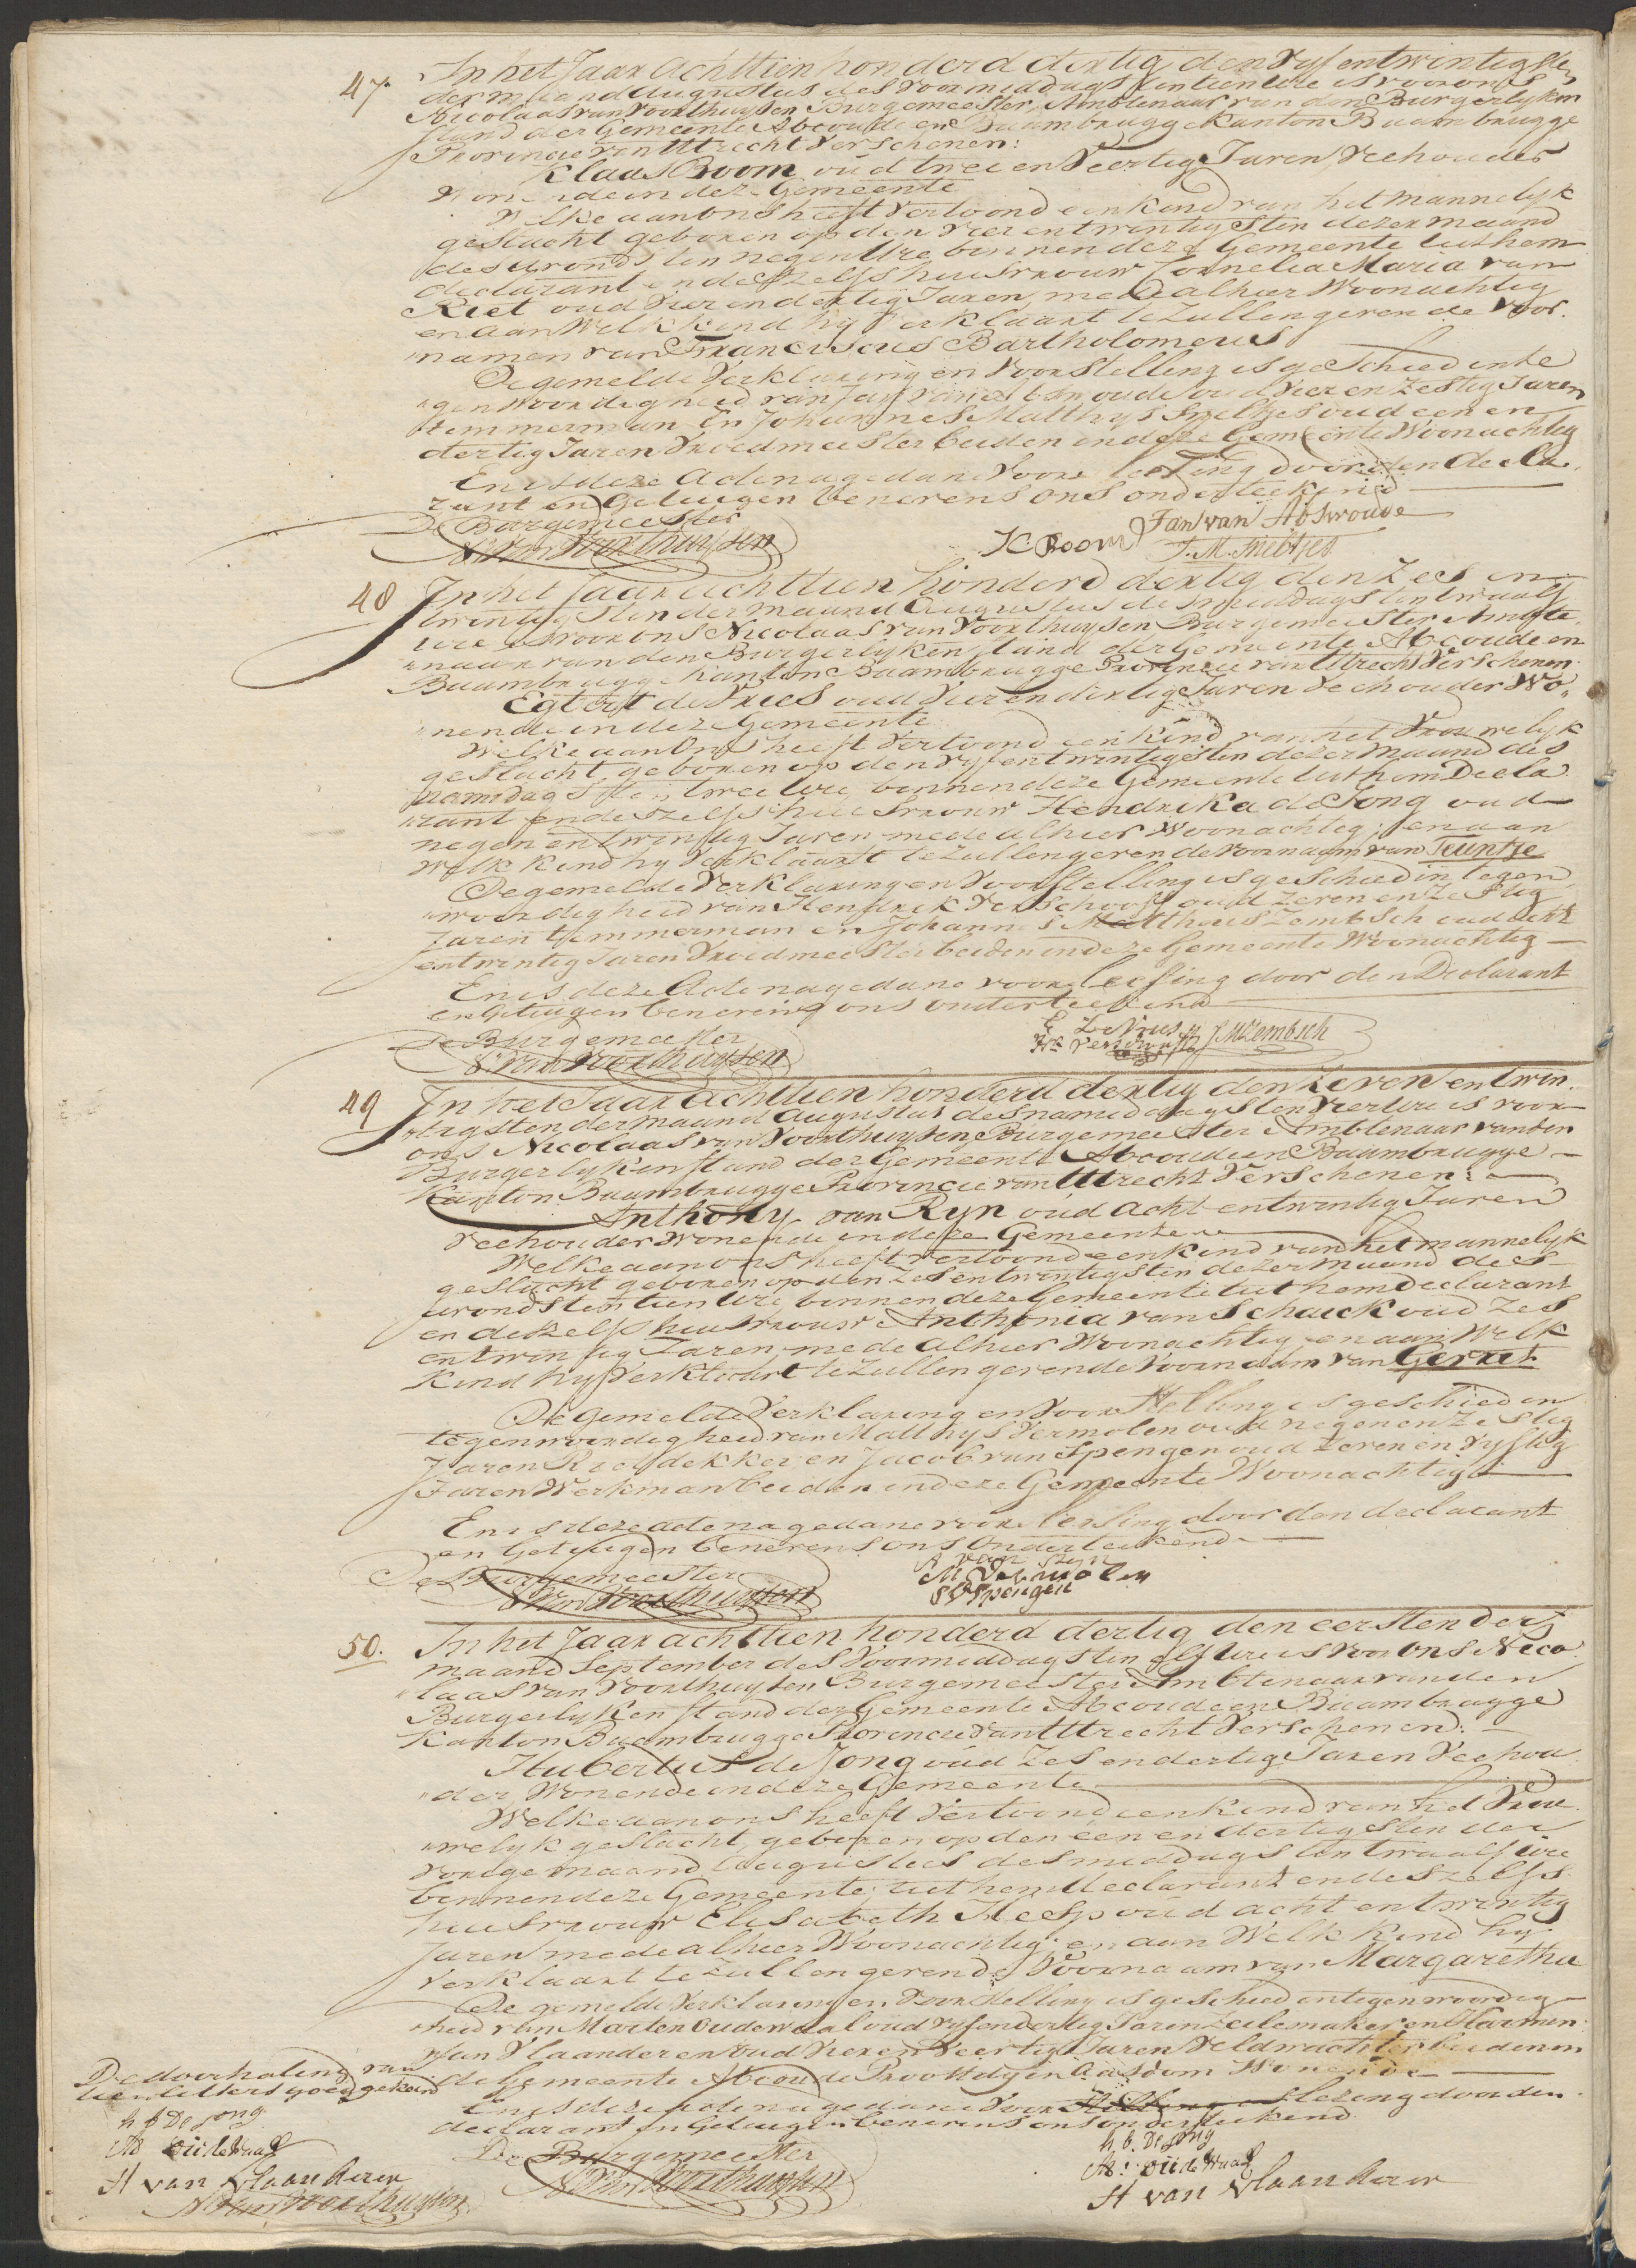 47. In het Jaar achttien honderd dertig den Vyf en twintigsten
der maand Augustus des Voormiddags ten tien Ure is voor ons
Nicolaas van Voorthuysen Burgemeester, Ambtenaar van den Burgerlyken
stand der Gemeente Abcoude en Baambrugge Kanton Baambrugge
Provincie van Uttrecht Verschenen:
Klaas Room oud twee en Veertig Jaren Veehouder
Wonende in deze Gemeente
Welke aan ons heeft Vertoond een kind van het mannelyk
geslacht geboren op den Vier en twintigsten dezer maand
des avonds ten negen Ure binnen deze Gemeente uit hem
declarant en deszelfs huisvrouw Cornelia Maria van
Riet oud Vier en dertig Jaren, mede alhier Woonachtig
en aan Welk kind hy Verklaart te zullen geven de Voor
namen van Franciscus Bartholomeus
De gemelde Verklaring en Voorstelling is geschied in te
genwoordigheid van Jan van Abswoude oud Vier en Zestig Jaren
timmerman En Johannes Matthys Snieltjes oud een en
dertig Jaren Vroedmeester beiden in deze Gemeente Woonachtig
En is deze Acte na gedane Voorleesing door den Decla
rant en Getuigen benevens ons onderteekend
De Burgemeester
N Van Voorthuysen
K Room Jan van Abswoude
J. M. Snieltjes
48 In het Jaar achttien honderd dertig den Zes en
twintigsten der maand Augustus des middags ten twaalf
Ure is voor ons Nicolaas van Voorthuysen Burgemeester Ambte
naar van den Burgerlyken stand der Gemeente Abcoude en
Baambrugge Kanton Baambrugge Provincie van Uttrecht Verschenen
Egbert de Vries oud Vier en dertig Jaren Veehouder Wo
nende in deze Gemeente
Welke aan Ons heeft Vertoond een kind van het Vrouwelyk
geslacht, geboren op den vyf en twintigsten dezer maand des
namiddags ten twee Ure binnen deze Gemeente uit hem Decla
rant en deszelfs huisvrouw Hendrika de Jong oud
negen en twintig Jaren mede alhier Woonachtig; en aan
Welk kind hy Verklaart te zullen geven de Voornaam van Teuntje
De gemelde Verklaring en Voorstelling is geschied in tegen
woordigheid van Hendrik Verschoof oud Zeven en Zestig
Jaren timmerman en Johannes Mattheus Zembsch oud acht
en twintig Jaren Vroedmeester beiden in deze Gemeente Woonachtig
En is deze Acte na gedane voorleesing door den Declarant
en Getuigen benevens ons onderteekend
De Burgemeester
N. Van Voorthuysen
E De Vries J M Zembsch
Hk Verschooff
49 In het Jaar Achttien honderd dertig den Zeven en twin
tigsten der maand Augustus des namiddags ten Vier Ure is voor
ons Nicolaas van Voorthuysen Burgemeester Ambtenaar van den
Burgerlyken stand der Gemeente Abcoude en Baambrugge
Kanton Baambrugge Provincie van Uttrecht Verschenen:
Anthony van Ryn oud acht en twintig Jaren
Veehouder Wonende in deze Gemeente
Welke aan ons heeft vertoond een kind van het mannelyk
geslacht geboren op den Zes en twintigsten dezer maand des
avonds ten tien Ure, binnen deze Gemeente uit hem Declarant
en deszelfs huisvrouw Anthonia van Schaick oud Zes
en twintig Jaren, mede alhier Woonachtig en aan Welk
Kind hy Verklaart te zullen geven de Voornaam van Gerret
De gemelde Verklaring en Voorstelling is geschied in
tegenwoordigheid van Matthys Vermolen oud negen en Zestig
Jaren Rietdekker en Jacob van Spengen oud Zeven en Vyftig
Jaren Werkman beiden in deze Gemeente Woonachtig
En is deze acte na gedane voorleesing door den declarant
en Getuigen benevens ons Onderteekend
De Burgemeester
N Van Voorthuysen
A van Ryn
M Vermolen
J V Spengen
50. In het Jaar achttien honderd dertig den eersten der
maand September des Voormiddags ten elf Ure is Voor Ons Nico
laas van Voorthuysen Burgemeester Ambtenaar van den
Burgerlyken stand der Gemeente Abcoude en Baambrugge
Kanton Baambrugge Provincie van Uttrecht Verschenen:
Hubertus de Jong oud Zes en dertig Jaren Veehou
der Wonende in deze Gemeente
Welke aan ons heeft Vertoond een kind van het Vrou
welyk geslacht, geboren op den een en dertigsten der
vorige maand Augustus des middags ten twaalf Ure
binnen deze Gemeente; uit hem declarant en deszelfs
huisvrouw Elisabeth Heesp oud acht en twintig
Jaren mede alhier Woonachtig; en aan Welk kind hy
Verklaart te zullen geven de Voornaam van Margaretha
De gemelde Verklaring en Voorstelling is geschied in tegenwoordig
heid van Marten Oudewaal oud vyf en dertig Jaren Zeilemaker en Harmen
van Vlaanderen oud Vier en Veertig Jaren Veldwachter beiden in
de Gemeente Abcoude Proostdy en Aasdom Wonende
En is deze acte na gedane Voorleezing door den
declarant en Getuigen benevens ons onderteekend
De Burgemeester
N Van Voorthuysen
h. b. De Jong
M: oudewaal
H van Vlaanderen
De doorhaling van
tien letters goed gekeurd
h b De Jong
M oudewaal
H van Vlaanderen
N Van Voorthuysen